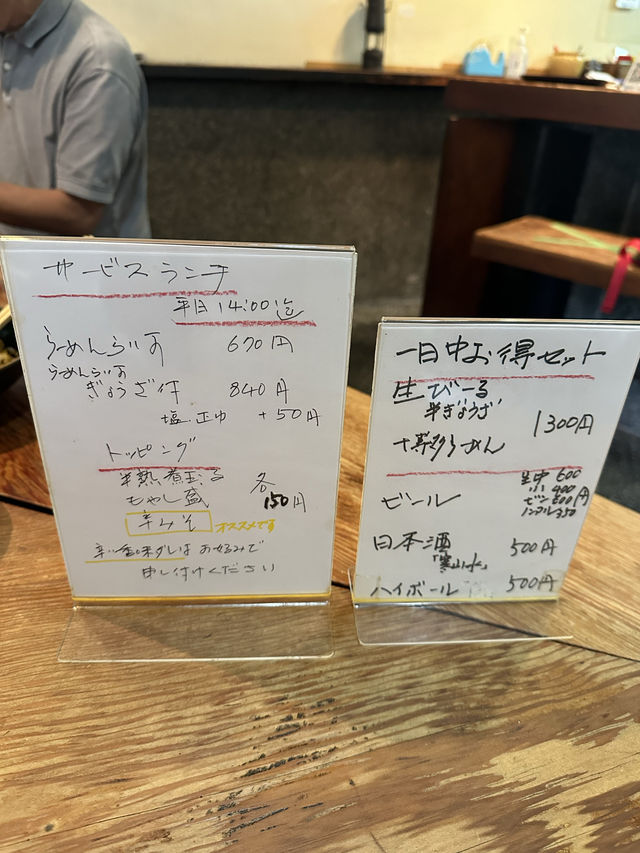 サービスランチ
平日14:00迄
らーめんらいす 670円
らーめんらいす
ぎょうざ付 840円
塩、正油 +50円
トッピング
半熟煮玉子
もやし盛
各150円
辛みそ オススメです
お好みで
申し付けください
一日中お得セット
生びーる
半ぎょうざ
らーめん
1300円
ビール
生中 600
小 400
ビン 600円
ノンアル 350
日本酒 500円
ハイボール 500円